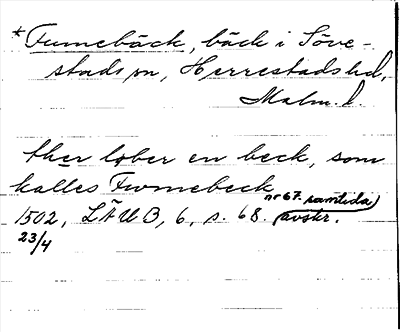 *Fumebäck, bäck i Söve-
stads sn, Herrestads hd,
Malm. l.
ther løber en beck, som
kalles Fwmebeck
1502, LÄUB, 6, s. 68. nr 67. samtida avskr.
23/4